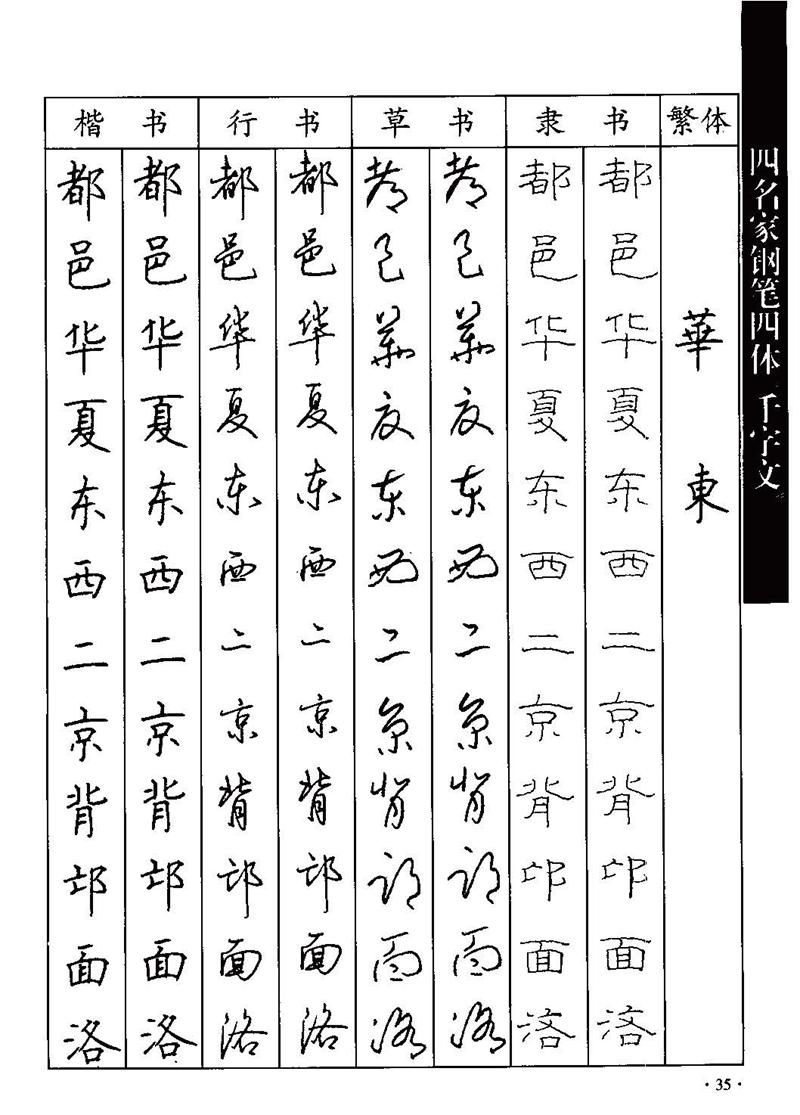 楷书 行书 草书 隶书 繁体
都 都 都 都 都 都 都 都
邑 邑 邑 邑 邑 邑 邑 邑
华 华 华 华 華 華 华 华 華
夏 夏 夏 夏 夏 夏 夏 夏
东 东 东 东 东 东 东 东 東
西 西 西 西 西 西 西 西
二 二 二 二 二 二 二 二
京 京 京 京 京 京 京 京
背 背 背 背 背 背 背 背
邙 邙 邙 邙 邙 邙 邙 邙
面 面 面 面 面 面 面 面
洛 洛 洛 洛 洛 洛 洛 洛
四名家钢笔四体 千字文
·35·